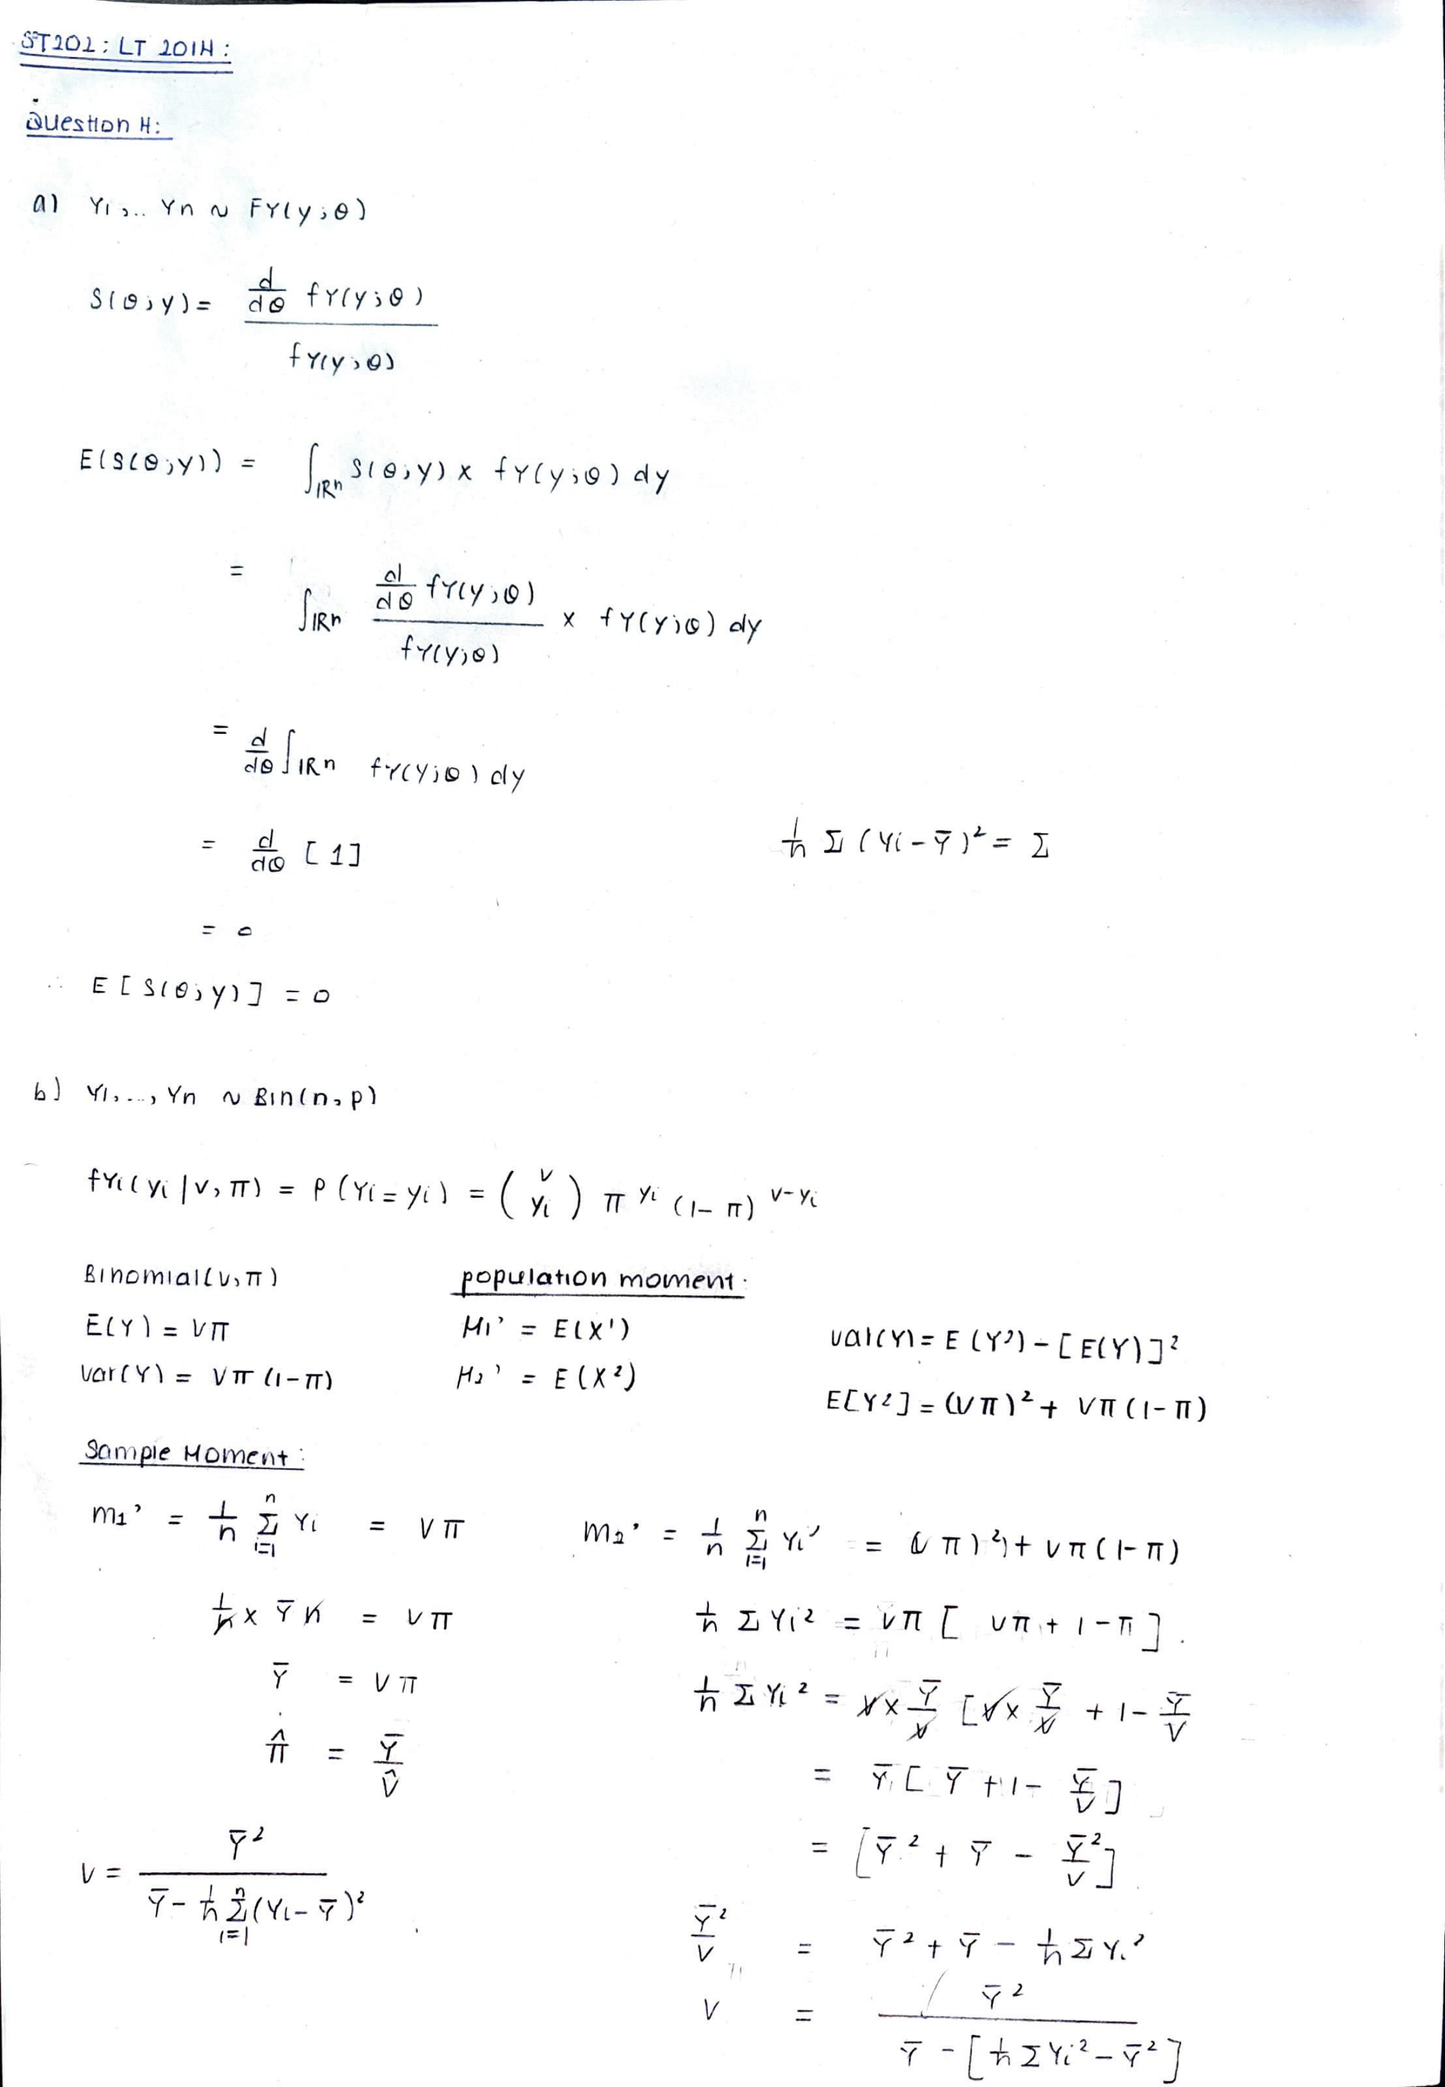 ST202: LT 2014:
Question 4:
a) Y1,.. Yn ~ FY(y;θ)
S(θ;y) = d/dθ fY(y;θ) / fY(y;θ)
E(S(θ;Y)) = ∫ℝⁿ S(θ;y) × fY(y;θ) dy
= ∫ℝⁿ (d/dθ fY(y;θ) / fY(y;θ)) × fY(y;θ) dy
= d/dθ ∫ℝⁿ fY(y;θ) dy
= d/dθ [1]
1/n Σ (Yi - Ȳ)² = Σ
= 0
∴ E[S(θ;y)] = 0
b) Y1,..., Yn ~ Bin(n, p)
fYi(yi | v, π) = P(Yi = yi) = (v yi) π^yi (1-π)^v-yi
Binomial(v, π)
E(Y) = vπ
Var(Y) = vπ(1-π)
population moment:
M1' = E(X¹)
M2' = E(X²)
Var(Y) = E(Y²) - [E(Y)]²
E[Y²] = (vπ)² + vπ(1-π)
Sample Moment:
m1' = 1/n Σ_{i=1}^{n} Yi = vπ
1/n × Ȳn = vπ
Ȳ = vπ
π̂ = Ȳ / v̂
v = Ȳ² / (Ȳ - 1/n Σ_{i=1}^{n} (Yi - Ȳ)²)
m2' = 1/n Σ_{i=1}^{n} Yi² = (vπ)² + vπ(1-π)
1/n Σ Yi² = vπ [vπ + 1 - π].
1/n Σ Yi² = v × Ȳ/v [v × Ȳ/v + 1 - Ȳ/v
= Ȳ [Ȳ + 1 - Ȳ/v]
= [Ȳ² + Ȳ - Ȳ²/v]
Ȳ²/v = Ȳ² + Ȳ - 1/n Σ Yi²
v = Ȳ² / (Ȳ - [1/n Σ Yi² - Ȳ²])